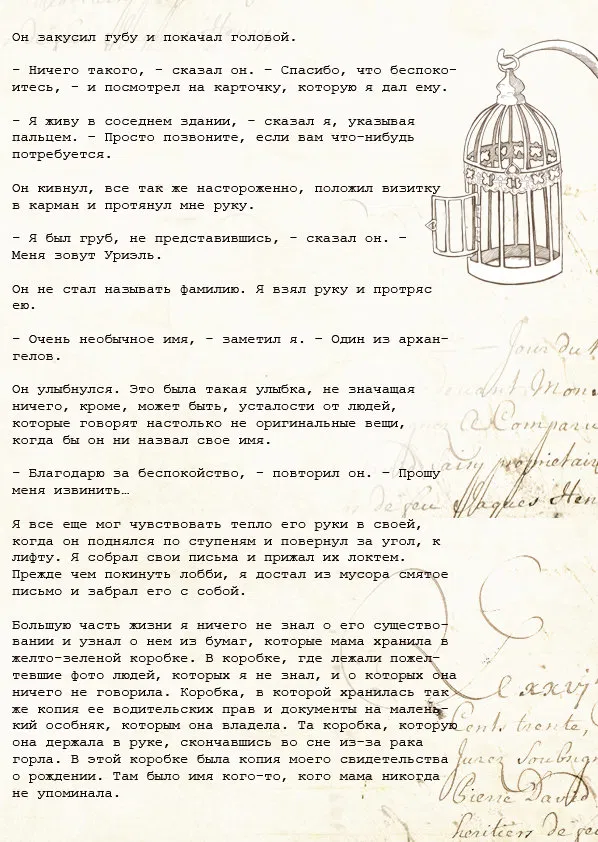 Он закусил губу и покачал головой.
– Ничего такого, – сказал он. – Спасибо, что беспоко-
итесь, – и посмотрел на карточку, которую я дал ему.
– Я живу в соседнем здании, – сказал я, указывая
пальцем. – Просто позвоните, если вам что-нибудь
потребуется.
Он кивнул, все так же настороженно, положил визитку
в карман и протянул мне руку.
– Я был груб, не представившись, – сказал он. –
Меня зовут Уриэль.
Он не стал называть фамилию. Я взял руку и протряс
ею.
– Очень необычное имя, – заметил я. – Один из архан-
гелов.
Он улыбнулся. Это была такая улыбка, не значащая
ничего, кроме, может быть, усталости от людей,
которые говорят настолько не оригинальные вещи,
когда бы он ни назвал свое имя.
– Благодарю за беспокойство, – повторил он. – Прошу
меня извинить…
Я все еще мог чувствовать тепло его руки в своей,
когда он поднялся по ступеням и повернул за угол, к
лифту. Я собрал свои письма и прижал их локтем.
Прежде чем покинуть лобби, я достал из мусора смятое
письмо и забрал его с собой.
Большую часть жизни я ничего не знал о его существо-
вании и узнал о нем из бумаг, которые мама хранила в
желто-зеленой коробке. В коробке, где лежали пожел-
тевшие фото людей, которых я не знал, и о которых она
ничего не говорила. Коробка, в которой хранилась так
же копия ее водительских прав и документы на малень-
кий особняк, которым она владела. Та коробка, которую
она держала в руке, скончавшись во сне из-за рака
горла. В этой коробке была копия моего свидетельства
о рождении. Там было имя кого-то, кого мама никогда
не упоминала.
Jour du
Mon
Comparu
proprietair
Jaques Hen
Lxxvj
Cents trente,
Pierre David
heritiers de feu